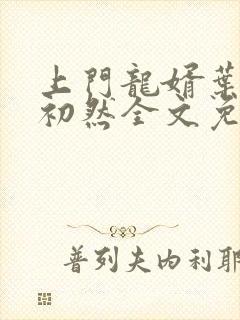 上門龍婿葉
初然全文免
普列夫内利耶